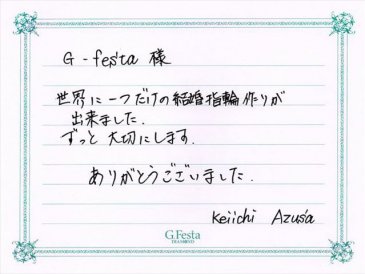 G-festa 様
世界に一つだけの結婚指輪作りが
出来ました.
ずっと大切にします.
ありがとうございました.
Keiichi Azusa
G.Festa
DIAMOND